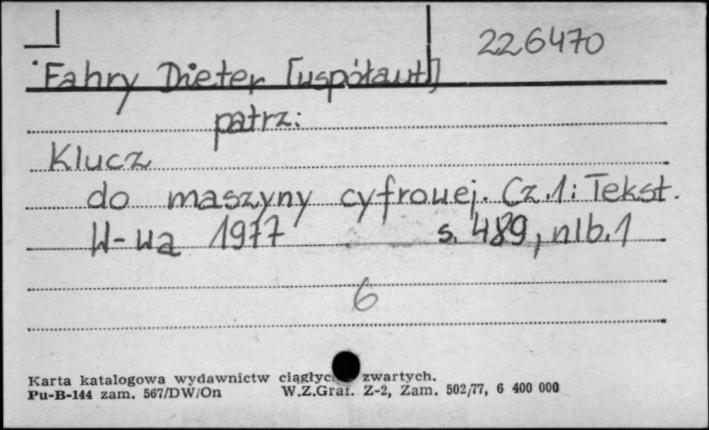 226470
Fahry Dieter [współaut]
patrz:
Klucz
do maszyny cyfrowej. Cz.1: Tekst.
W-wa 1977 s. 489, nlb. 1
6
Karta katalogowa wydawnictw ciągłyc zwartych.
Pu-B-144 zam. 567/DW/On W.Z.Graf. Z-2, Zam. 502/77, 6 400 000